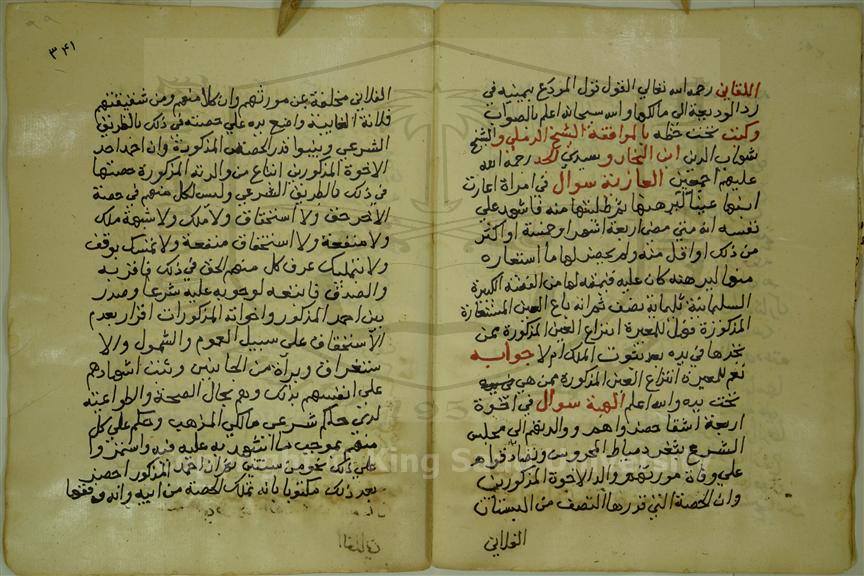 اللقاني رحمه الله تعالى القول قول المودع بيمينه في
رد الوديعة الى مالكها والله سبحانه اعلم بالصواب
وكتب تحت خطه بالمرافقة الشيخ الرملي والشيخ
شهاب الدين ابن النجار وسيدي احمد رحمة الله
عليهم اجمعين العارية سوال في امراة اعارت
ابنها عينا ليرهنها ثم طلبتها منه فاشهد على
نفسه انه متى مضى اربعة اشهر او خمسة او اكثر
من ذلك او اقل منه ولم يحضر لها ما استعاره
منها ليرهنه كان عليه قيمته لها من الفضة الكبيرة
السلمانية ثلمانية نصف ثم انه باع العين المستعارة
المذكورة فهل للمعيرة انتزاع العين المذكورة ممن
يجدها في يده بعد ثبوت الملك ام لا جوابه
نعم للمعيرة انتزاع العين المذكورة ممن هي في
تحت يده والله اعلم الهبة سوال في اخوة
اربعة اشقا حضروا هم ووالدتهم الى مجلس
الشرع بثغر دمياط المحروس وتصادقوا هم
على وفاة مورثهم والد الاخوة المذكورين
وان الحصة التي قدرها النصف من البستان
الفلاني
٣٤١
الفلاني مخلفة عن مورثهم وان كلا منهم ومن شقيقتهم
فلانة الغايبة واضع يده على حصته في ذلك بالطريق
الشرعي وبينوا قدر الحصص المذكورة وان احمد احد
الاخوة المذكورين ابتاع من والدته المذكورة حصتها
في ذلك بالطريق الشرعي وليس لكل منهم في حصة
الاخر حق ولا استحقاق ولا ملك ولا شبهة ملك
ولا منفعة ولا استحقاق منفعة ولا تمسك بوقف
ولا بتمليك عرف كل منهم الحق في ذلك فاقر به
والصدق فاتبعه لوجوبه عليه شرعا وصدر
بين احمد المذكور واخواته المذكورات اقرار بعدم
الاستحقاق على سبيل العموم والشمول والا
ستغراق وبراة من الجانبين وثبت اشهادهم
على انفسهم بذلك وهم بحال الصحة والطواعية
لدى حاكم شرعي مالكي المذهب وحكم على كل
منهم بموجب ما اشهد به عليه فيه واستمروا
على ذلك نحو من سنتين ثم ان احمد المذكور احضر
بعد ذلك مكتوبا بانه تملك الحصة من ابيه وانه وقفها